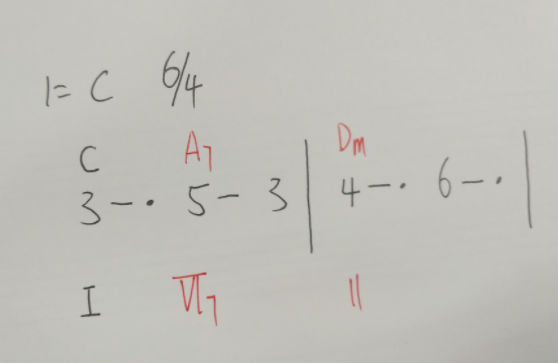 1= C 6/4
C A7 Dm
3 – · 5 – 3 | 4 – · 6 – · |
I VI7 II